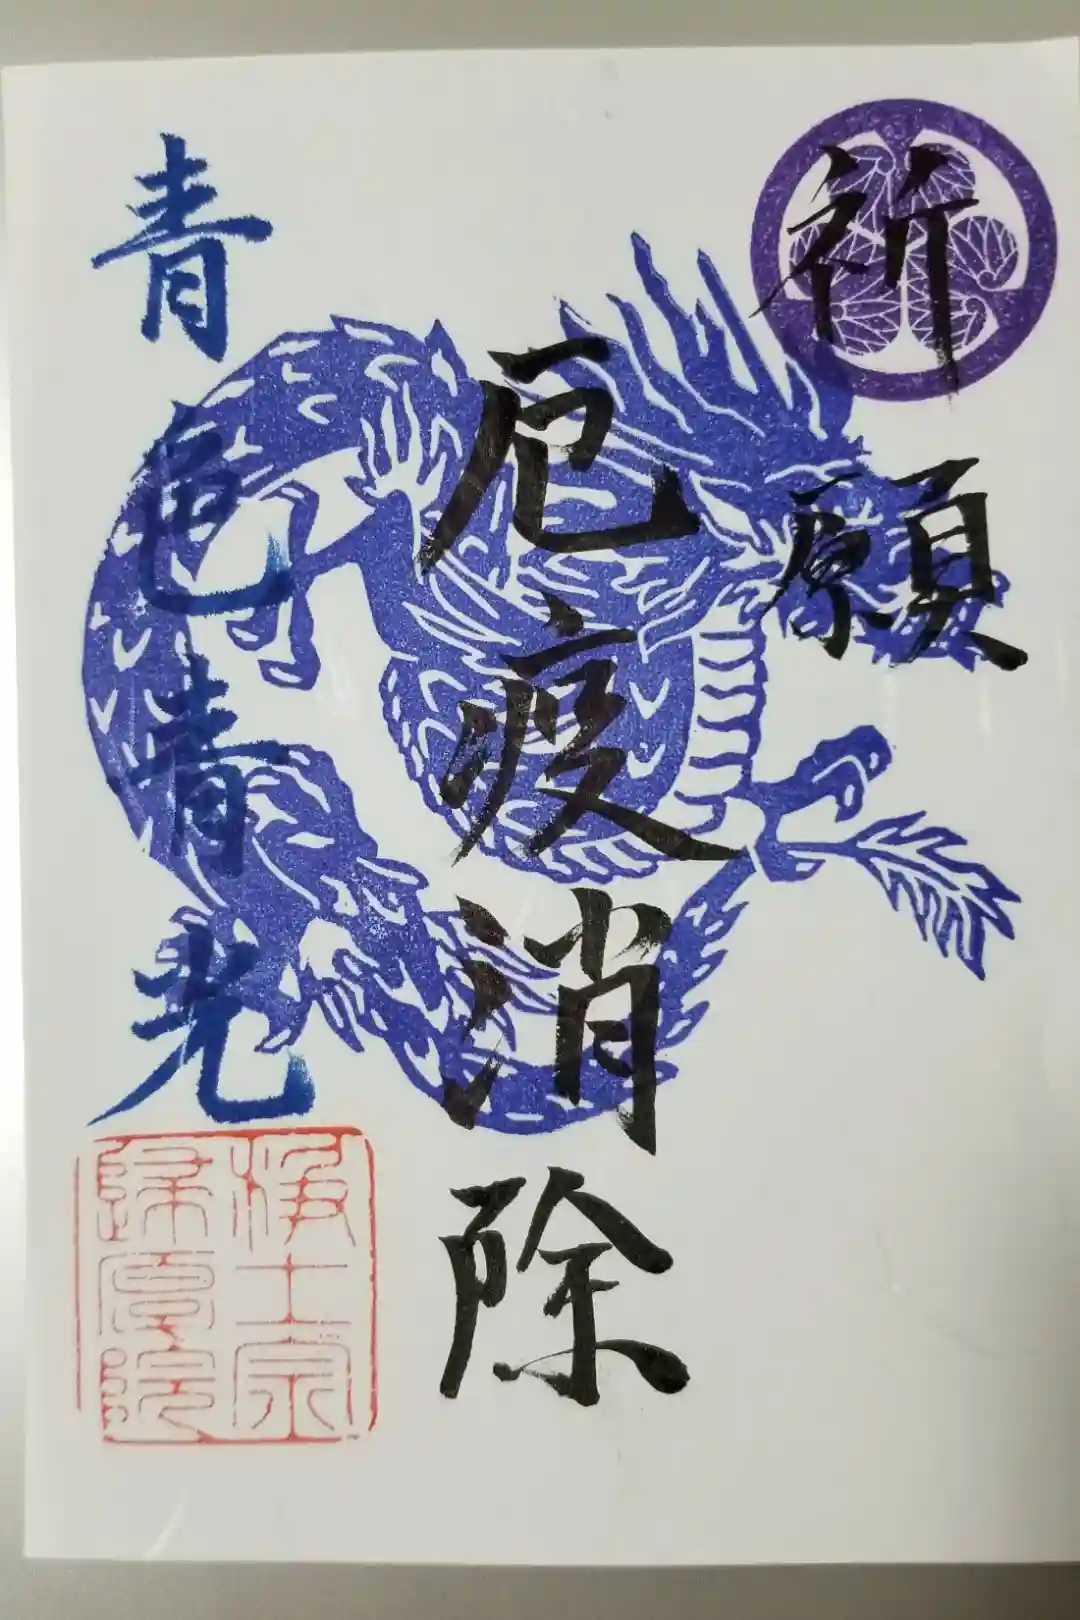 祈願
厄疫消除
青色青光
浄土宗
歸厚院